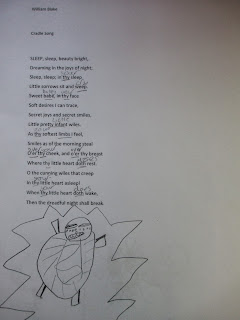 William Blake
Cradle Song
SLEEP, sleep, beauty bright,
Dreaming in the joys of night;
Sleep, sleep; in thy sleep
Little sorrows sit and weep.
Sweet babe, in thy face
Soft desires I can trace,
Secret joys and secret smiles,
Little pretty infant wiles.
As thy softest limbs I feel,
Smiles as of the morning steal
O'er thy cheek, and o'er thy breast
Where thy little heart doth rest.
O the cunning wiles that creep
In thy little heart asleep!
When thy little heart doth wake,
Then the dreadful night shall break.